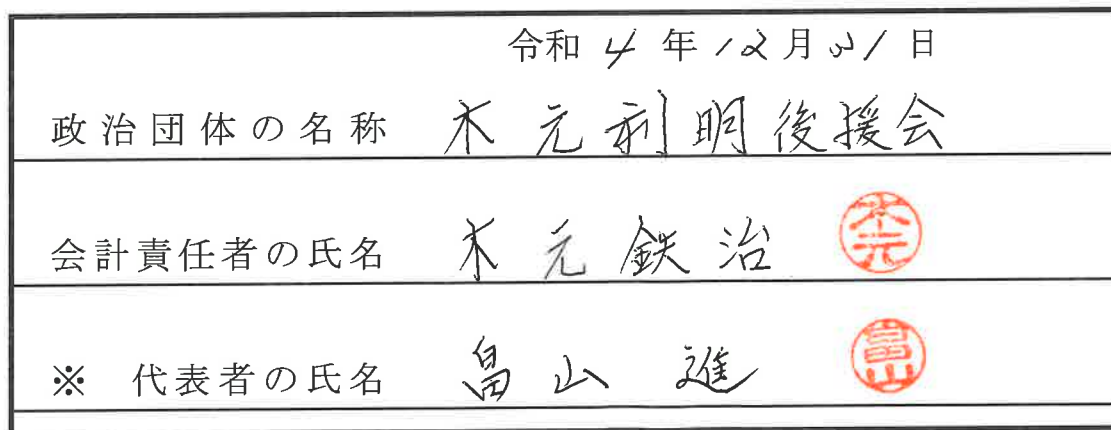 令和 4 年 12 月 31 日
政治団体の名称 木元利明後援会
会計責任者の氏名 木元鉄治 木元
※ 代表者の氏名 畠山 進 畠山